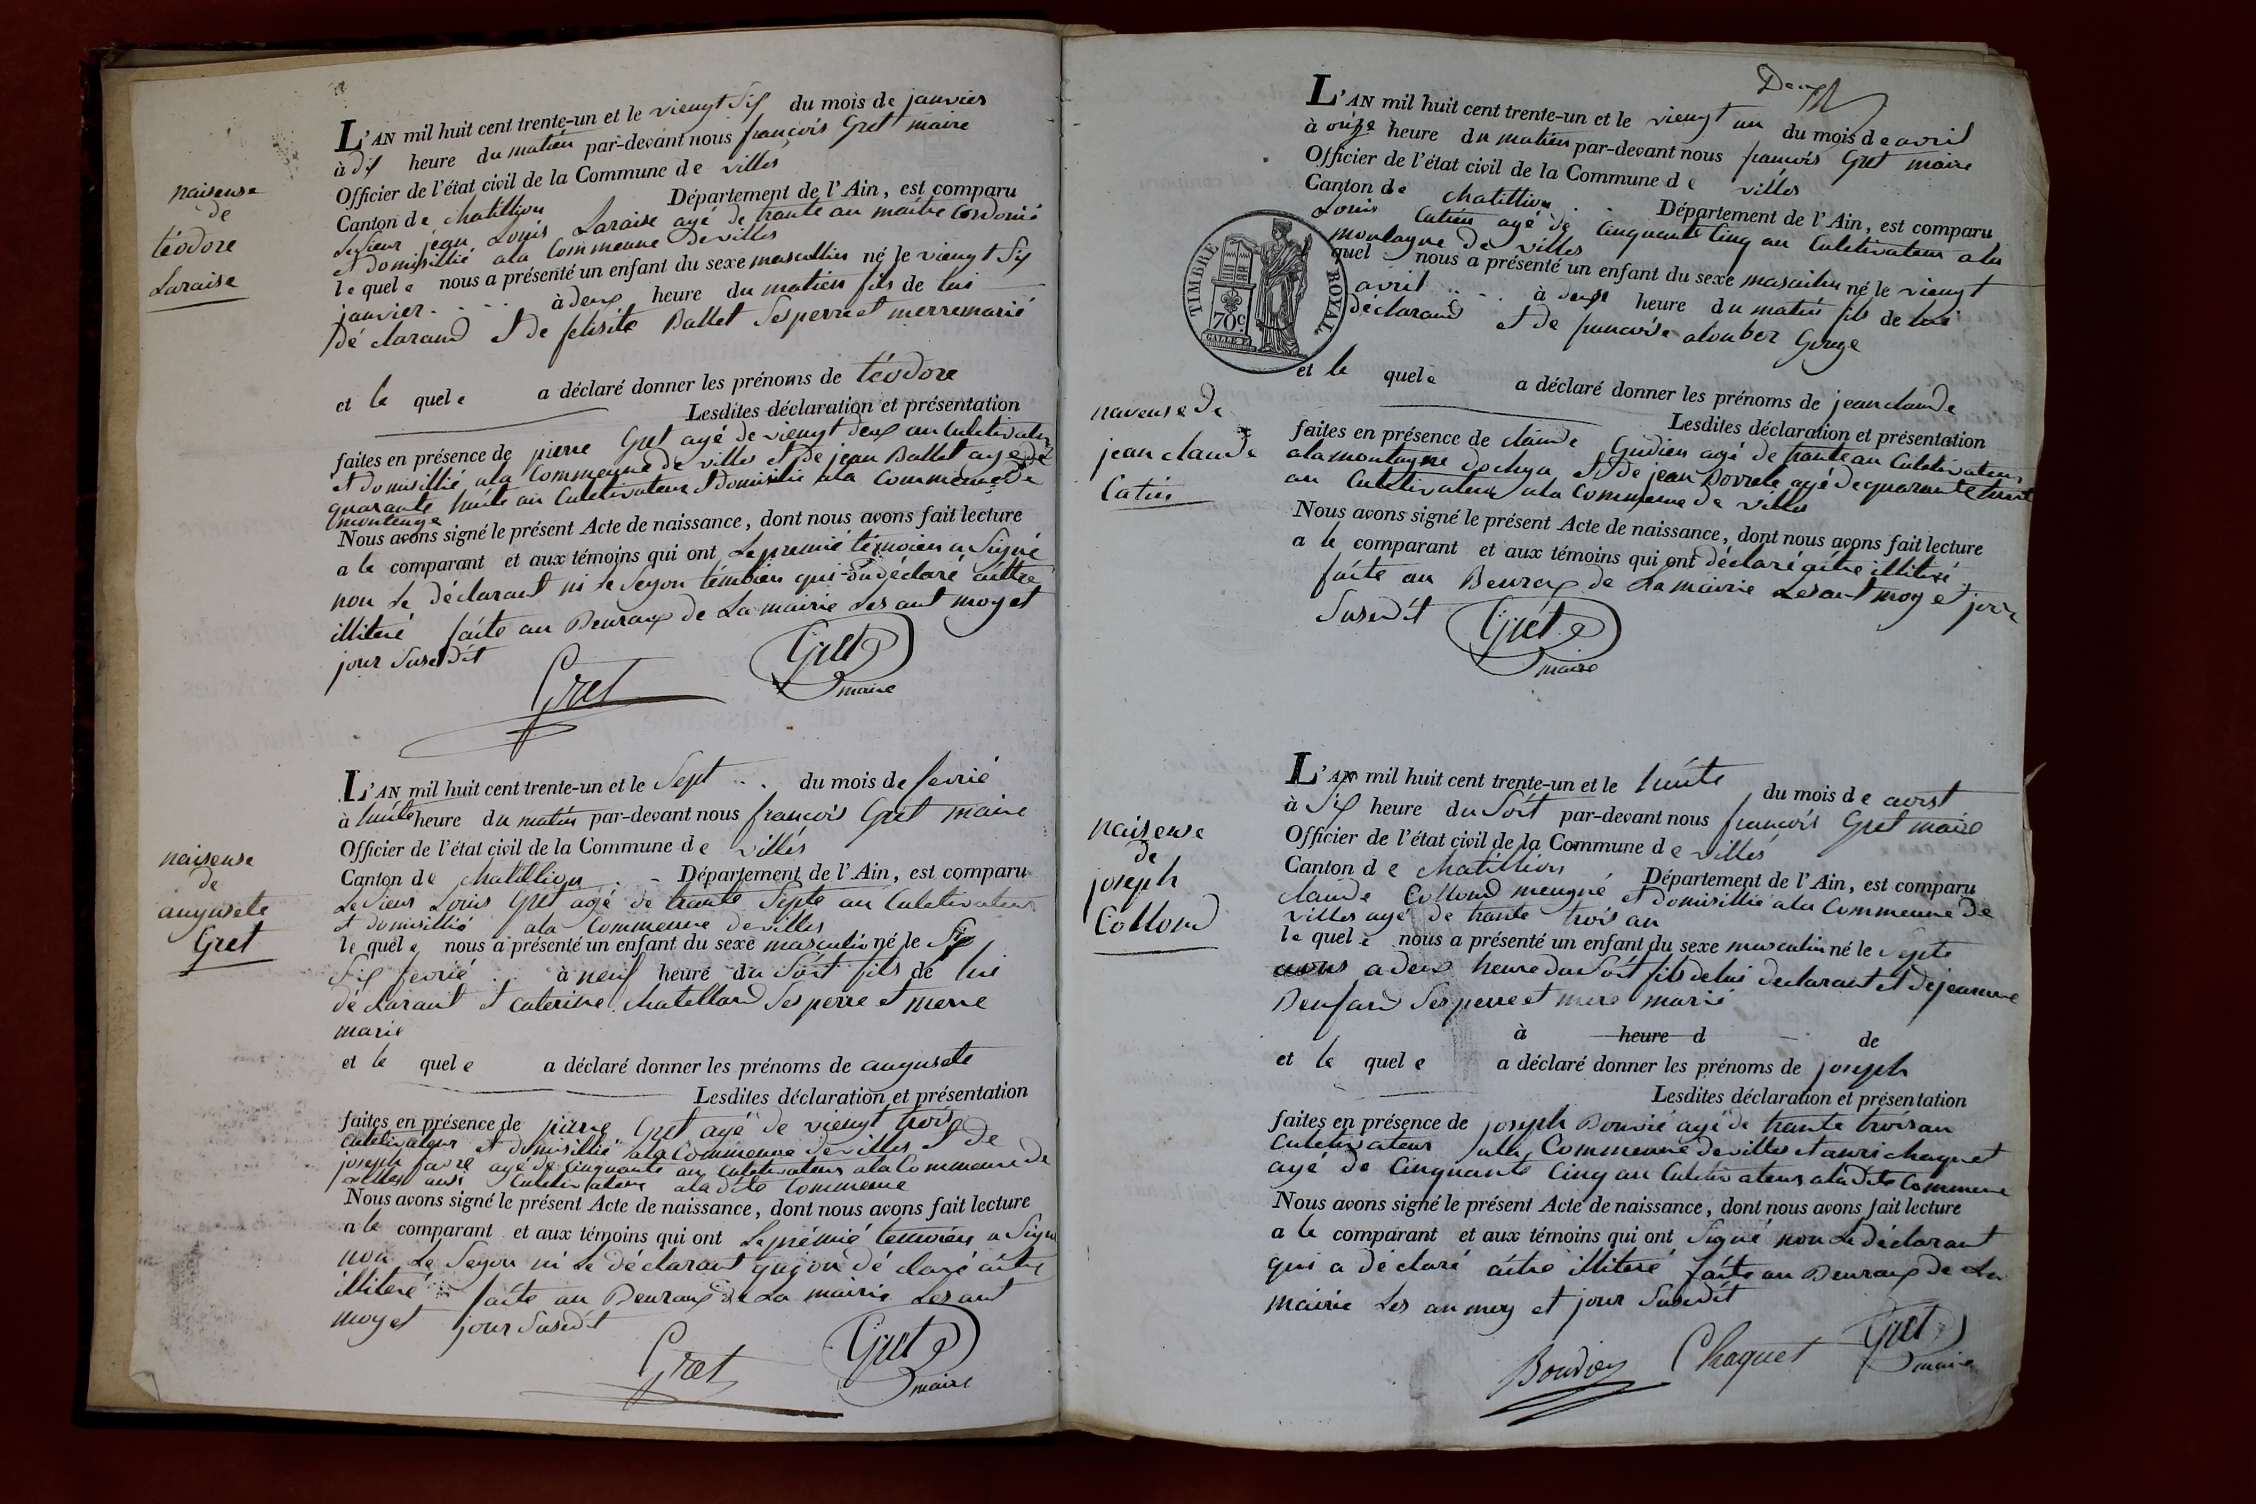 naisense
de
téodore
Laraise
L'AN mil huit cent trente-un et le viengt Six du mois de janvier
à dix heure du matien par-devant nous françois Gret maire
Officier de l'état civil de la Commune de villes
Canton de chatillion Département de l'Ain, est comparu
le sieur jean Louis Laraise agé de trante un maitre Cordonié
et domisillié a la Commenne de villes
le quel e nous a présenté un enfant du sexe mascullien né le viengt Six
janvier à deux heure du matien fils de lui
dé clarand et de felisite Ballet Ses perre et merre marié
et le quel e a déclaré donner les prénoms de téodore
Lesdites déclaration et présentation
faites en présence de pierre Gret agé de viengt deux an Culetivateur
et domisillié a la Commenne de villes et de jean Ballet agé de
quarante huite an Culetivateur et domisilié a la Commenne de
montenge
Nous avons signé le présent Acte de naissance, dont nous avons fait lecture
a le comparant et aux témoins qui ont Le premié témoien a Signé
non Le déclarant ni le Segon témoien qui on déclaré aittre
illiteré faite au Beuraux de La mairie Les ant moy et
jour Susedit
Gret
Gret
maire
naisense
de
augusete
Gret
L'AN mil huit cent trente-un et le Sept du mois de fevrié
à huite heure du matien par-devant nous françois Gret maire
Officier de l'état civil de la Commune de villes
Canton de chatillion Département de l'Ain, est comparu
Le Sieur Louis Gret agé de trante Septe an Culetivateur
et domisillié a la Commenne de villes
le quel e nous a présenté un enfant du sexe masculin né le Six
Six fevrié à neuf heure du Soit fils de lui
dé clarant et caterine chatelland Ses perre et merre
marié
et le quel e a déclaré donner les prénoms de augusete
Lesdites déclaration et présentation
faites en présence de pierre Gret agé de viengt trois
Culetivateur et domisillié a la Commenne de villes et de
joseph favre agé de Cinquante an Culetivateur a la Commenne de
villes ausi Culetivateur a la dite Commenne
Nous avons signé le présent Acte de naissance, dont nous avons fait lecture
a le comparant et aux témoins qui ont Le prémié temoien a Signé
non Le Segon ni Le déclarant qui on dé claré aitre
illiteré faite au Beuraux de La mairie Les ant
moy et jour Susedit
Gret
Gret
maire
Deux
L'AN mil huit cent trente-un et le viengt un du mois de avril
à onze heure du matien par-devant nous françois Gret maire
Officier de l'état civil de la Commune de villes
Canton de chatillion Département de l'Ain, est comparu
Louis Catien agé de Cinquante Cinq an Culetivateur a la
montagne de villes
quel nous a présenté un enfant du sexe masculin né le viengt
avril à deux heure du matien fils de lui
déclarand et de francoise
et le quel e a déclaré donner les prénoms de jean claude
Lesdites déclaration et présentation
TIMBRE ROYAL
70c.
naveuse de
jean claude
Catien
faites en présence de claude Gudien agé de trante an Culetivateur
a la montagne et de jean Borrele agé de quarante huit
an Culetivateur a la Commenne de villes
Nous avons signé le présent Acte de naissance, dont nous avons fait lecture
a le comparant et aux témoins qui ont déclaré aitre illiteré
faite au Beuraux de La mairie Les ant moy et jour
Susedit
Gret
maire
naisense
de
joseph
Collond
L'AN mil huit cent trente-un et le huite du mois de avost
à Six heure du Soit par-devant nous françois Gret maire
Officier de l'état civil de la Commune de villes
Canton de Chatillion Département de l'Ain, est comparu
claude Collond meugné et domisillié a la Commenne de
villes agé de trante trois an
le quel e nous a présenté un enfant du sexe masculin né le septe
a deux heure du Soit fils de lui declarant et de jeanne
Benfard Ses perre et mere marié
à heure d de
et le quel e a déclaré donner les prénoms de joseph
Lesdites déclaration et présentation
faites en présence de joseph Bouvié agé de trante trois an
Culetivateur a la Commenne de villes et anri chaquet
agé de Cinquante Cinq an Culetivateur a la dite Commenne
Nous avons signé le présent Acte de naissance, dont nous avons fait lecture
a le comparant et aux témoins qui ont Signé non Le déclarant
qui a déclaré aitre illiteré faite au Beuraux de La
mairie Les an moy et jour Susedit
Bouvier Chaquet Gret
maire